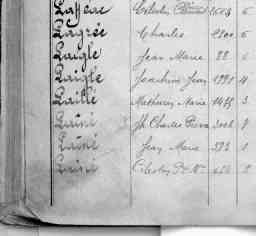 Laffeac Célestin 2503 5
Lagrée Charles 2200 5
Laigle Jean Marie 88 6
Laigle Joachim Jean 1991 4
Laillé Mathurin Marie 1485 3
Lainé Jh Charles Pierre 3008 7
Lainé Jean Marie 392 1
Lainé Célestin Pre Mie